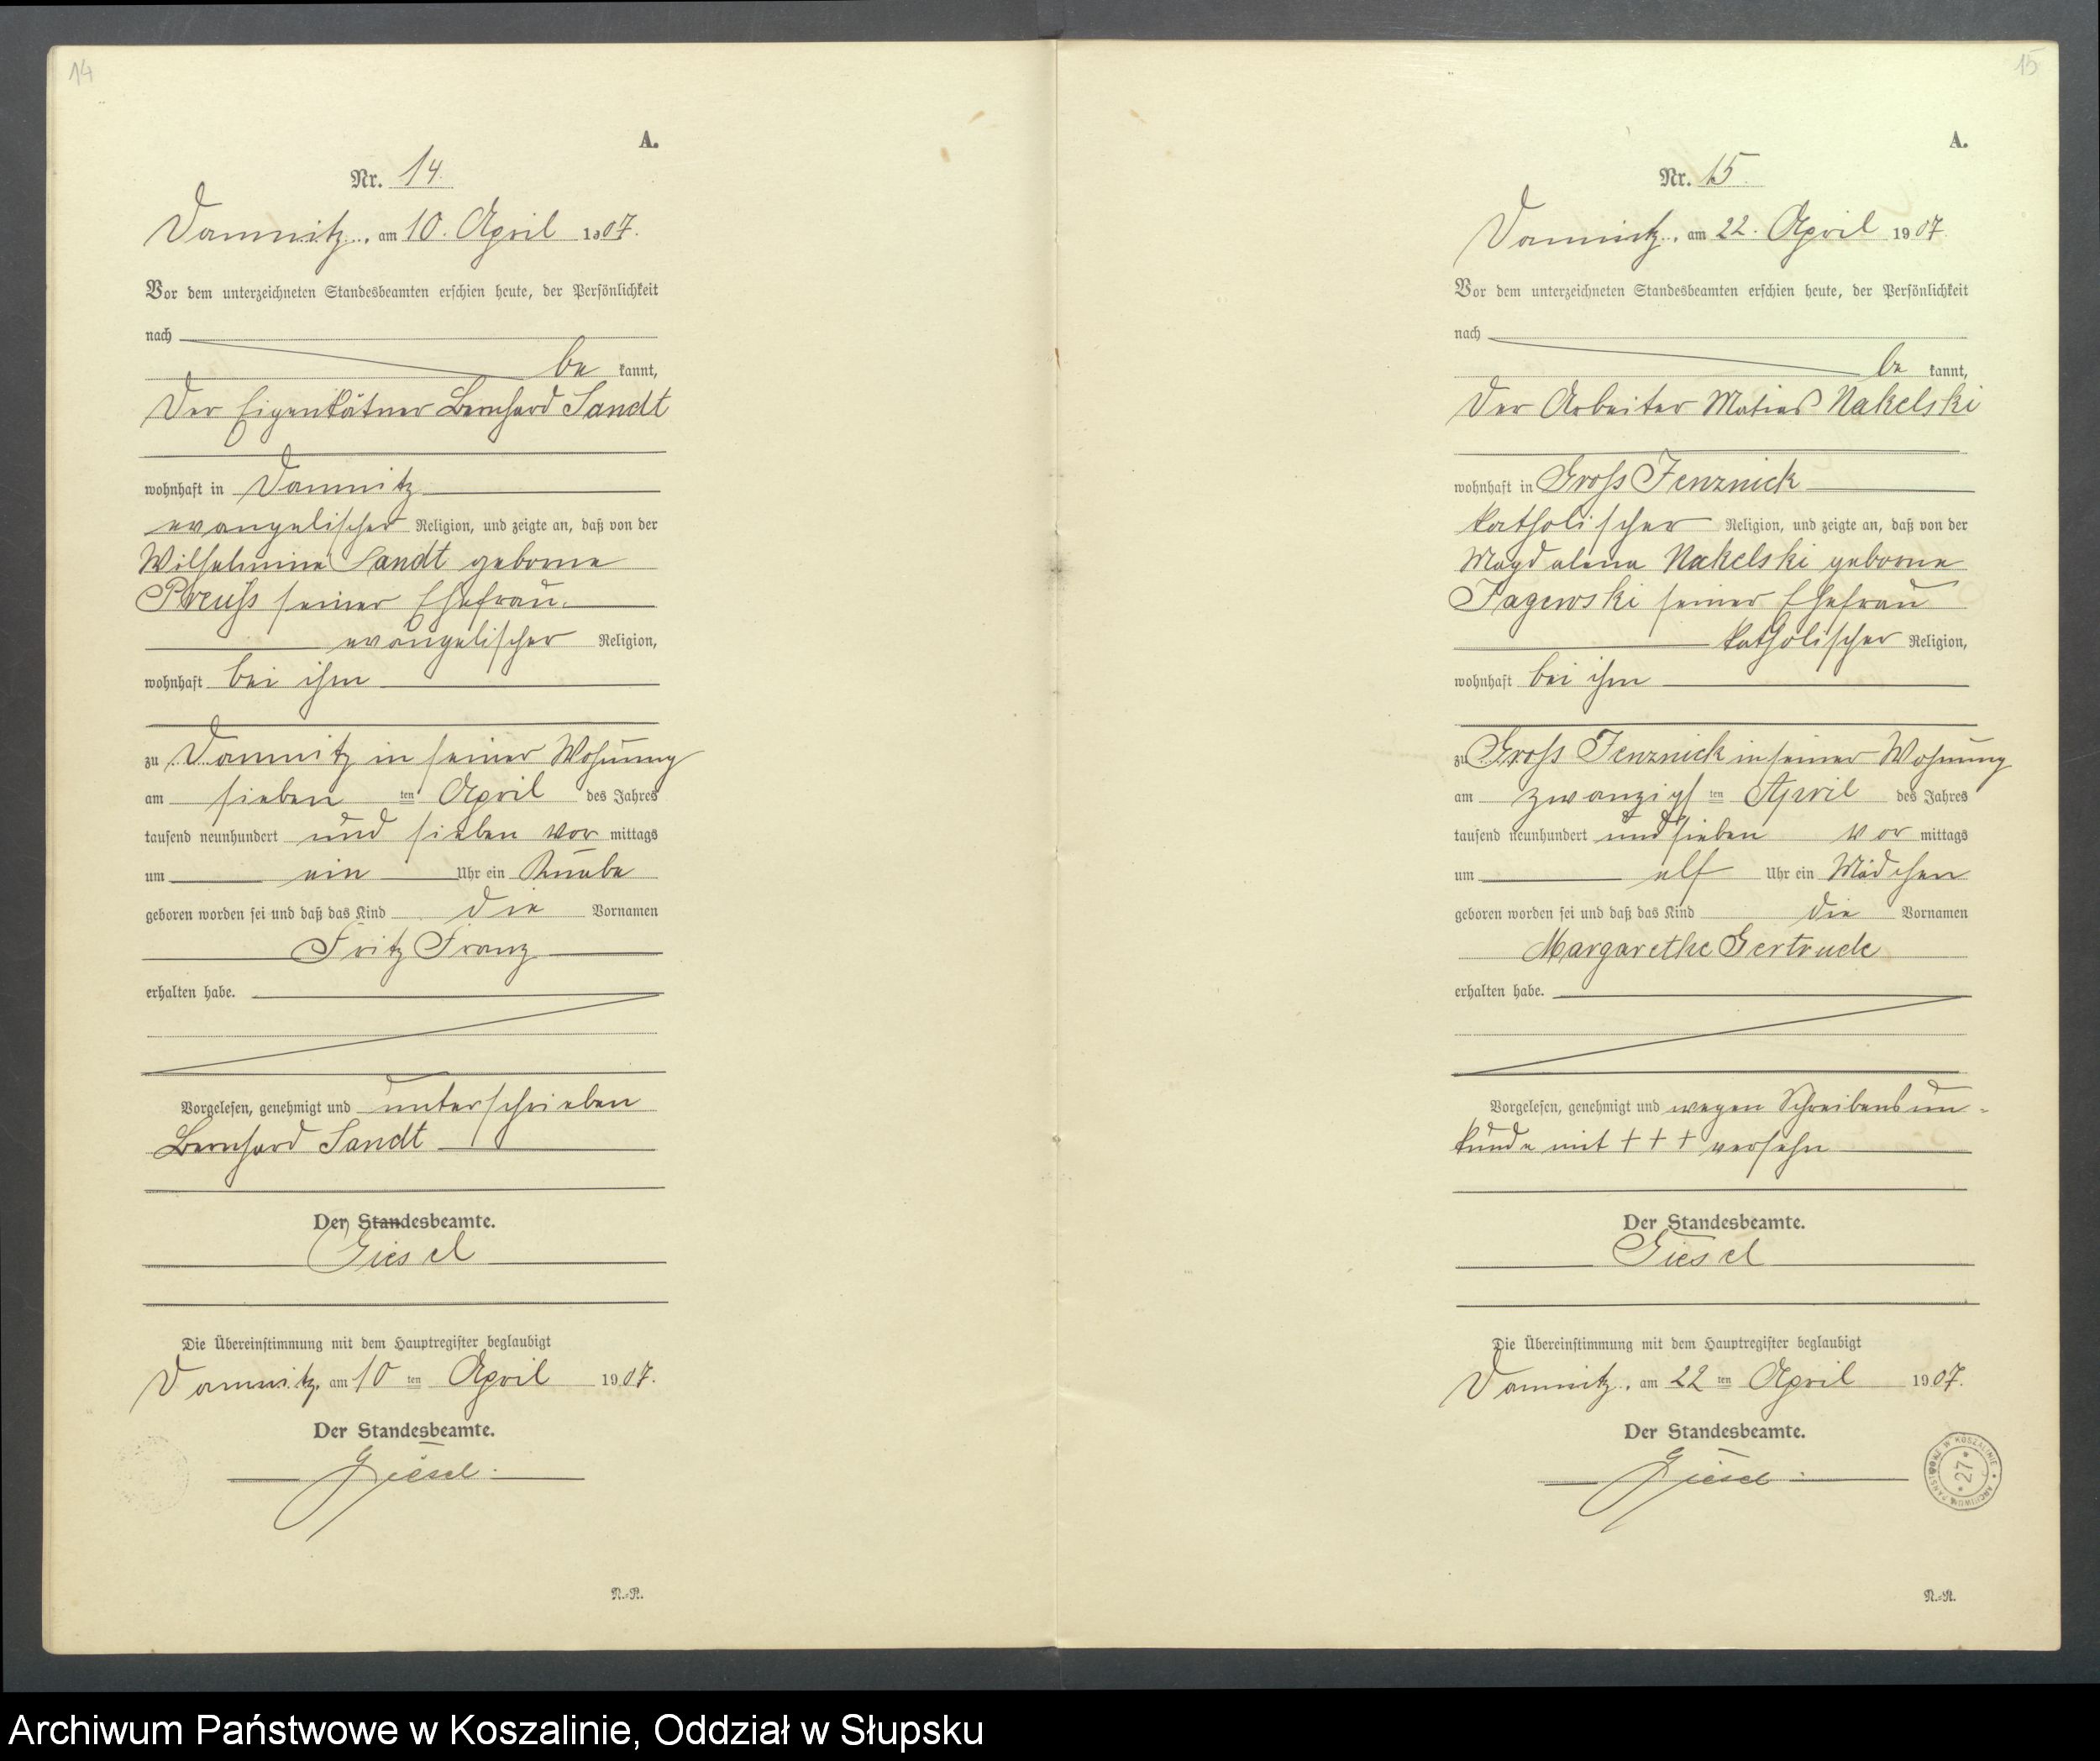 14
A.
Nr. 14.
Damnitz, am 10. April 1907.
Vor dem unterzeichneten Standesbeamten erschien heute, der Persönlichkeit
nach
be kannt,
Der Eigenkätner Bernhard Sandt
wohnhaft in Damnitz
evangelischer Religion, und zeigte an, daß von der
Wilhelmine Sandt geborne
Preuß seiner Ehefrau.
evangelischer Religion,
wohnhaft bei ihm
zu Damnitz in seiner Wohnung
am sieben ten April des Jahres
tausend neunhundert und sieben Vor mittags
um ein Uhr ein Knabe
geboren worden sei und daß das Kind die Vornamen
Fritz Franz
erhalten habe.
Vorgelesen, genehmigt und unterschrieben
Bernhard Sandt
Der Standesbeamte.
Giesel
Die Übereinstimmung mit dem Hauptregister beglaubigt
Damnitz, am 10 ten April 1907.
Der Standesbeamte.
Giesel.
N.-R.
15
A.
Nr. 15.
Damnitz, am 22. April 1907
Vor dem unterzeichneten Standesbeamten erschien heute, der Persönlichkeit
nach
be kannt,
Der Arbeiter Matias Nakelski
wohnhaft in Gross Jenznick
katholischer Religion, und zeigte an, daß von der
Magdalena Nakelski geborne
Jagewski seiner Ehefrau
katholischer Religion,
wohnhaft bei ihm
zu Gross Jenznick in seiner Wohnung
am zwanzigs ten April des Jahres
tausend neunhundert und sieben Vor mittags
um elf Uhr ein Mädchen
geboren worden sei und daß das Kind die Vornamen
Margarethe Gertrude
erhalten habe.
Vorgelesen, genehmigt und wegen Schreibensun-
kunde mit + + + versehn
Der Standesbeamte.
Giesel
Die Übereinstimmung mit dem Hauptregister beglaubigt
Damnitz, am 22 ten April 1907.
Der Standesbeamte.
Giesel.
ARCHIWUM PAŃSTWOWE W KOSZALINIE
* 27 *
N.-R.
Archiwum Państwowe w Koszalinie, Oddział w Słupsku